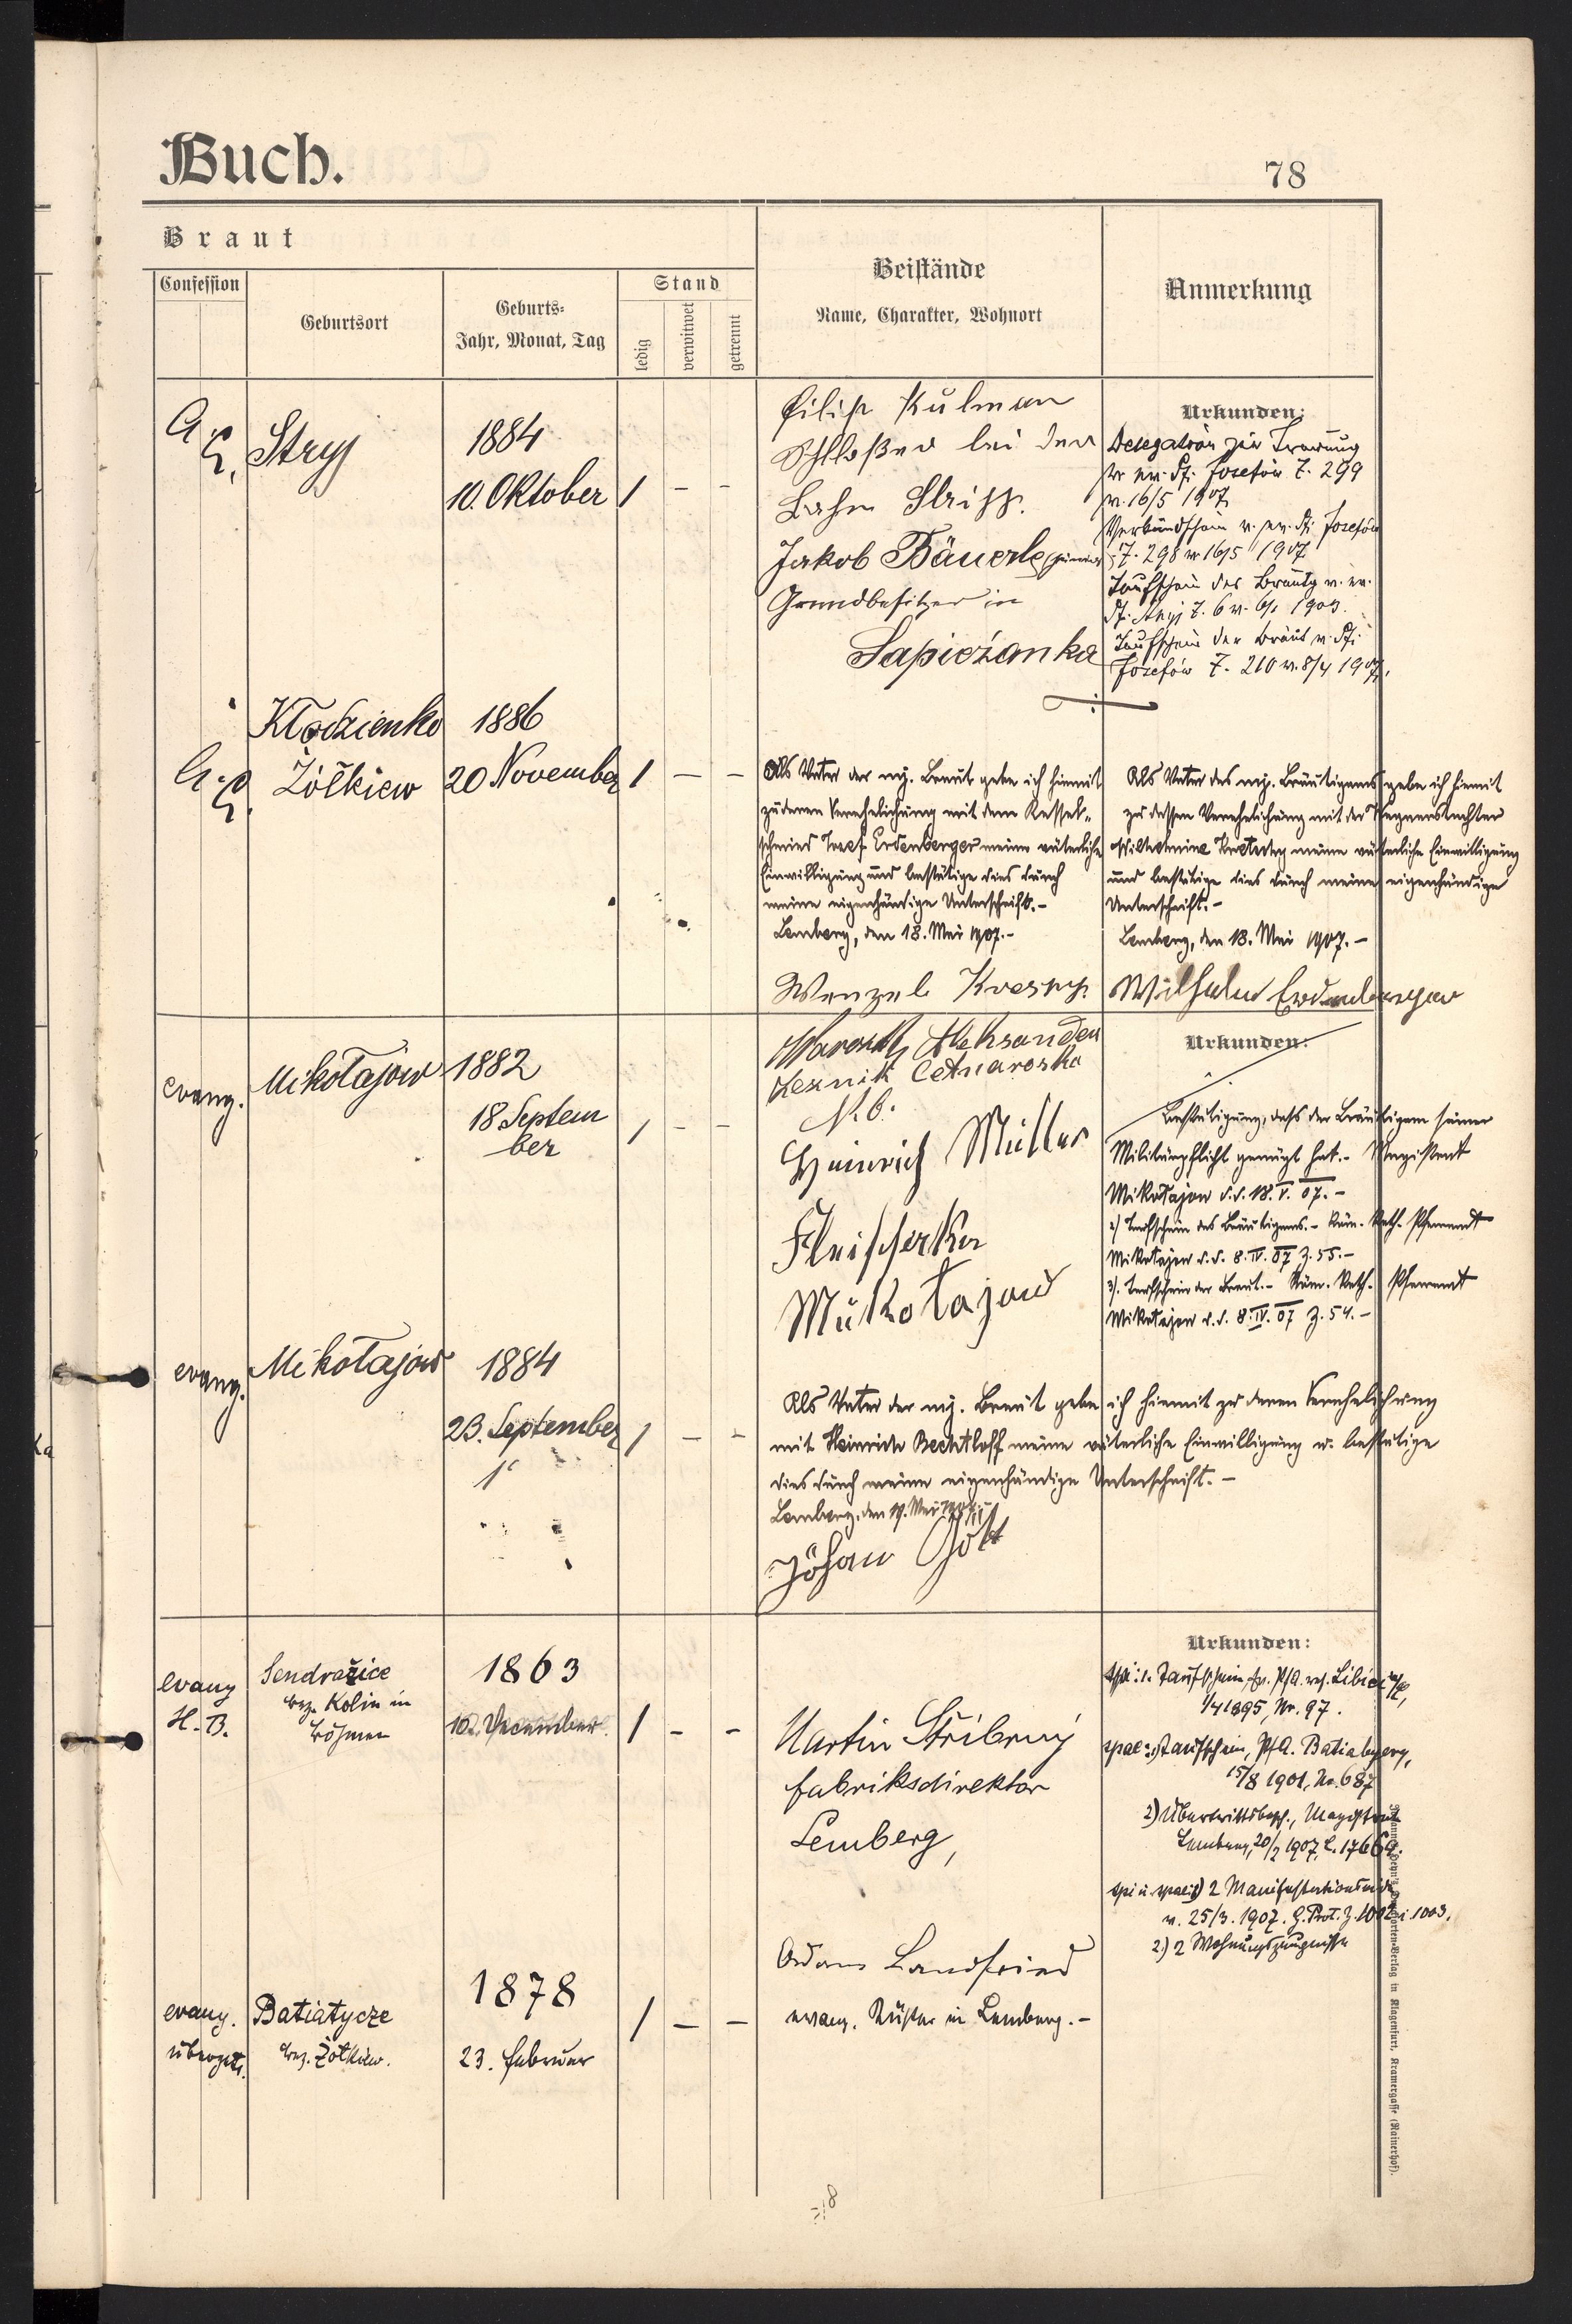 Buch.
78
Braut
Confession
Geburtsort
Geburts-
Jahr, Monat, Tag
Stand
ledig
verwitwet
getrennt
Beistände
Name, Charakter, Wohnort
Anmerkung
A.
C.
Stryj
1884
10. Oktober
1 – –
Filip Kulman
Schloßer bei der
Bahn Stryj.
Jakob Bäuerle junior
Grundbesitzer in
Sapieżanka
Urkunden:
Delegation zur Trauung
ev. Josefów Z. 299
v. 16/5 1907
Verkündschein v. ev. Josefów
Z. 298 v. 16/5 1907
Taufschein des Bräutg v. ev.
Stryj Z. 6 v. 1903.
Taufschein der Braut v.
Josefów Z. 210 v. 8/4 1907.
Kłodzienko
Żółkiew
1886
20 November
A.
C.
1 – –
Als Vater der mj. Braut gebe ich hiemit
zu deren Verehelichung mit dem Kessel-
schmied Josef Erdenberger meine väterliche
Einwilligung und bestätige dies durch
meine eigenhändige Unterschrift.-
Lemberg, den 18. Mai 1907.-
Wenzel
Als Vater des mj. Bräutigams gebe ich hiemit
zu dessen Verehelichung mit der
Wilhelmine meine väterliche Einwilligung
und bestätige dies durch meine eigenhändige
Unterschrift.-
Lemberg, den 18. Mai 1907.-
Wilhelm Erdenberger
evang.
Mikołajow
1882
18 Septem
ber
1 – –
Aleksander
Cetnarowka
N. 6.
Heinrich Müller
Fleischerka
Mikołajow
Urkunden:
Bestätigung, dass der Bräutigam seiner
Militärpflicht genügt hat.- Magistrat
Mikołajow d.d. 18. V. 07.-
2) Taufschein des Bräutigams.- Röm. Kath. Pfarramt
Mikołajow d.d. 8. IV. 07 Z. 55.-
3). Taufschein der Braut.- Röm. Kath. Pfarramt
Mikołajow d.d. 8. IV. 07 Z. 54.-
evang.
Mikołajow
1884
23. September
1 – –
Als Vater der mj. Braut gebe ich hiemit zu deren Verehelichung
mit Heinrich Bechtloff meine väterliche Einwilligung u. bestätige
dies durch meine eigenhändige Unterschrift.-
Lemberg, den 19. Mai 1907.
Johan Gött
evang
H.B.
Sendražice
bez. Kolin in
Böhmen
1863
December
1 – –
Martin Stříbrný
Fabriksdirektor
Lemberg,
Urkunden:
Taufschein, ev. PfA. ref. Libic
1/4 1895, Nr. 97.
Taufschein, PfA. Batiatycze,
15/8 1901, No. 687
2) Übertrittsbesch., Magistrat
Lemberg, 20/2 1907, Z. 17669.
2 Manifestationseide
v. 25/3. 1907. G. Prot. Z. 1002 i 1003.
2) 2 Wohnungszeugnisse
evang.
übergetr.
Batiatycze
bez. Żółkiew.
1878
23. Februar
1 – –
Adam Landfried
evang. Küster in Lemberg.-
Verlag in Klagenfurt, Kramergasse (Rainerhof).